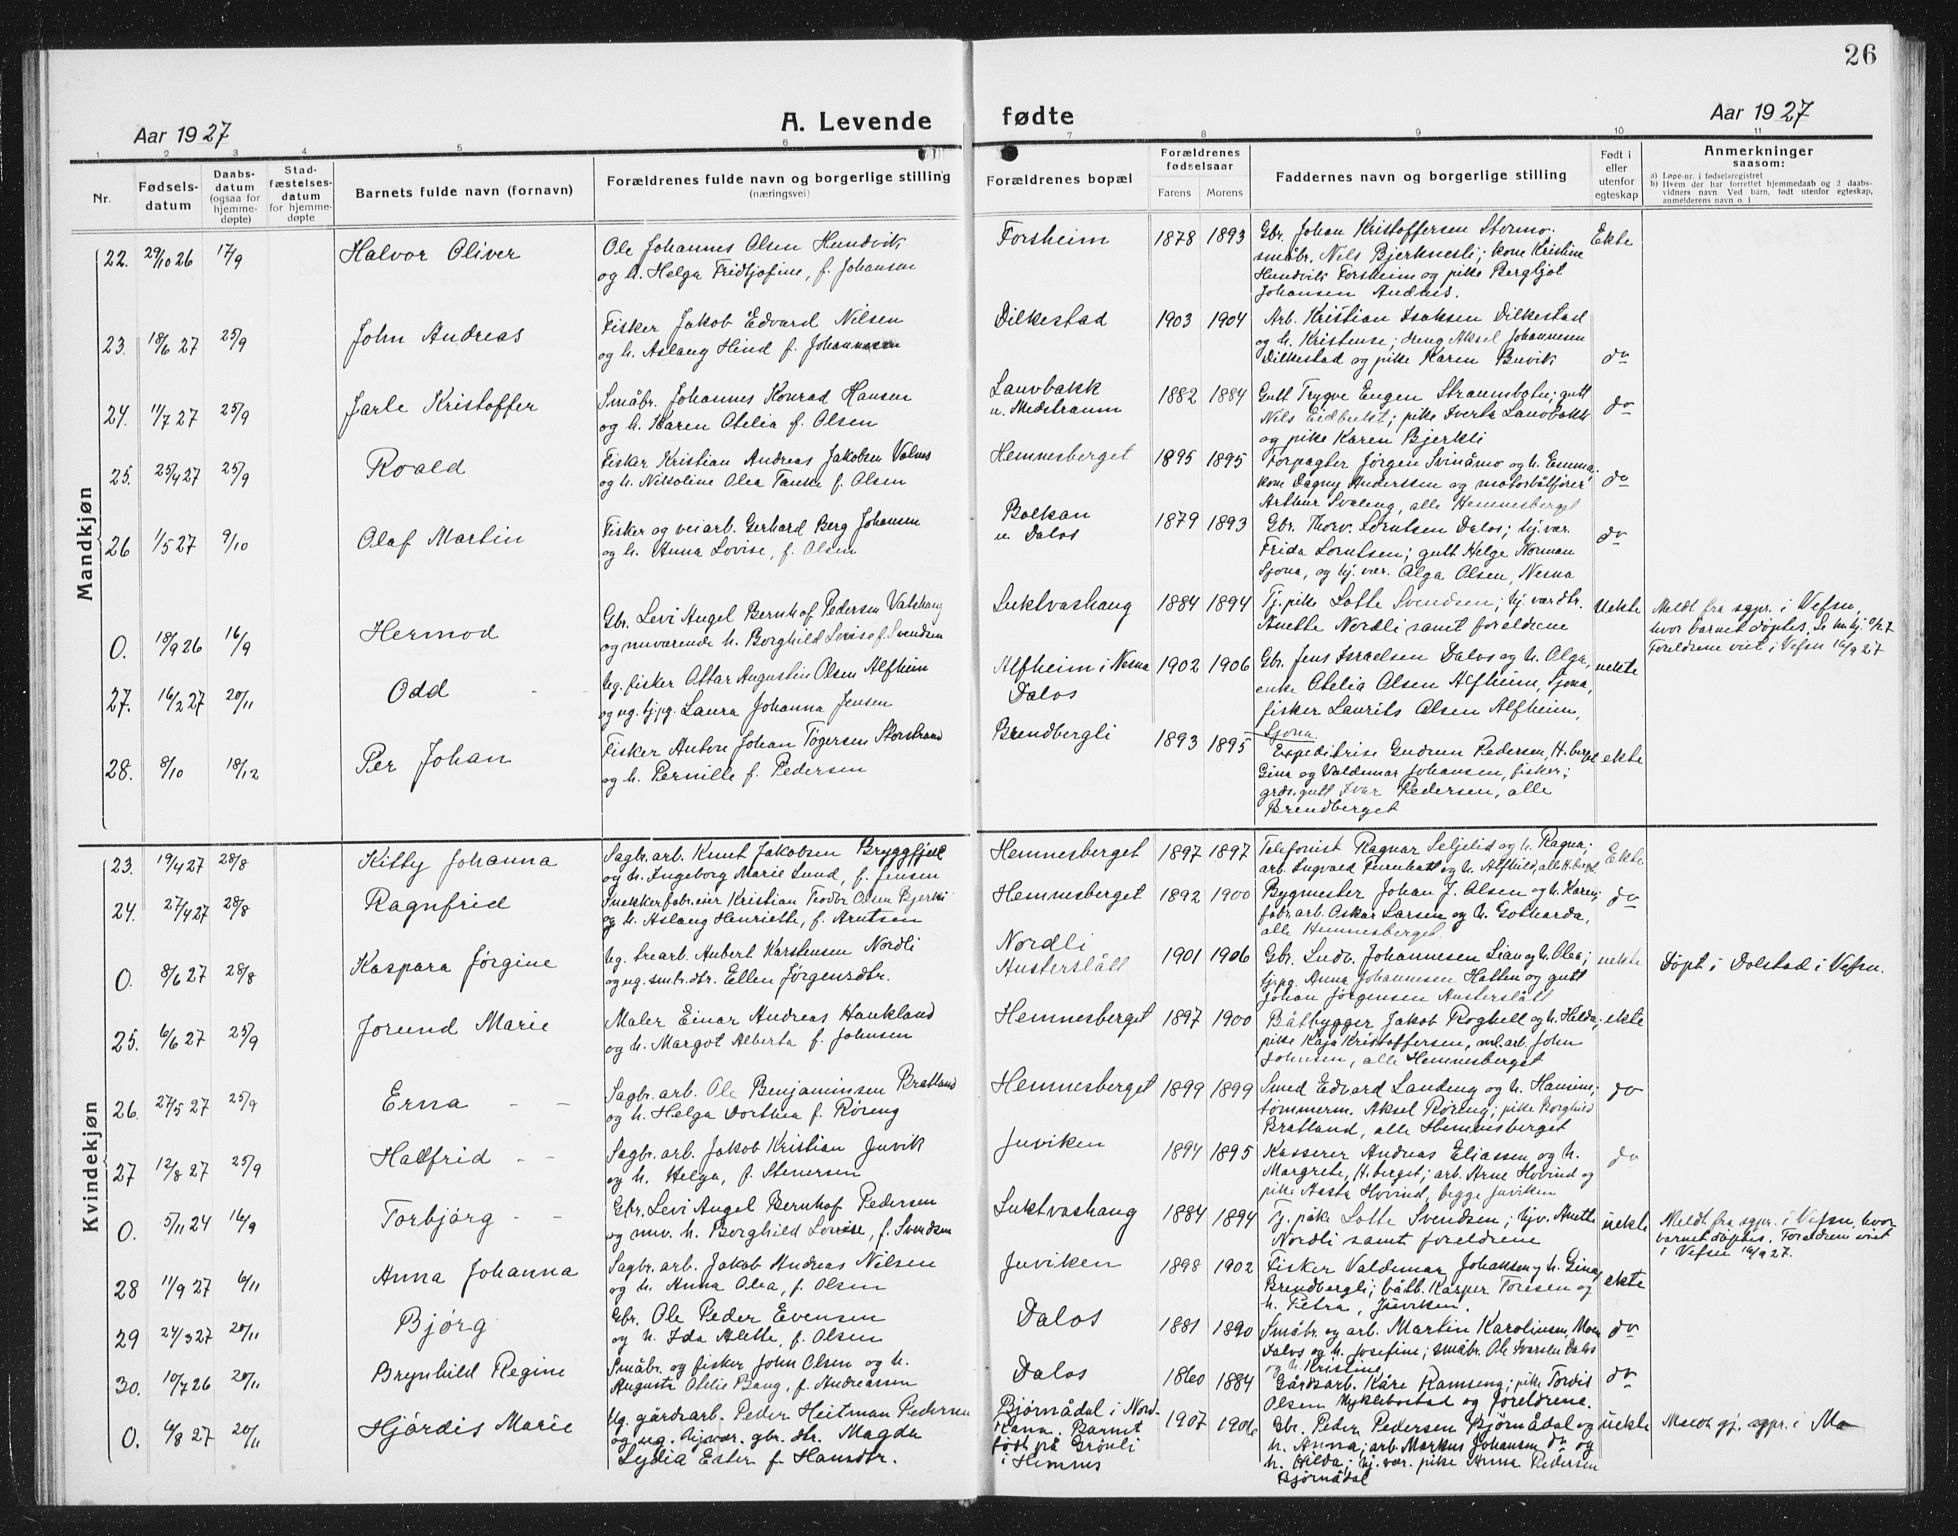 26
Aar 1927
A. Levende
fødte
Aar 1927
1 2 3 4 5 6 7 8 9 10 11
Nr.
Fødsels-
datum
Daabs-
datum
(ogsaa for
hjemme-
døpte)
Stad-
fæstelses-
datum
for hjemme-
døpte
Barnets fulde navn (fornavn)
Forældrenes fulde navn og borgerlige stilling
(næringsvei)
Forældrenes bopæl
Forældrenes
fødselsaar
Farens Morens
Faddernes navn og borgerlige stilling
Født i
eller
utenfor
egteskap
Anmerkninger
saasom:
a) Løpe-nr. i fødselsregistret
b) Hvem der har forrettet hjemmedaab og 2 daabs-
vidners navn. Ved barn, født utenfor egteskap,
anmelderens navn o. l
Mandkjøn
22. 29/10 26 17/9 Halvor Oliver
Ole Johannes Olsen Hundvik
og h. Helga Fridtjofine, f. Johansen
Forsheim 1878 1893
Gbr. Johan Kristoffersen Stormo;
småbr. Nils Bjerknesli; kone Kristine
Hundvik Forsheim og pike Bergljot
Johansen
Ekte
23. 18/6 27 25/9 John Andreas
Fisker Jakob Edvard Nilsen
og h. Aslaug Hind f. Johannesen
Dilkestad 1903 1904
Arb. Kristian Isaksen Dilkestad
og h. Kristense; dreng Aksel Johannesen
Dilkestad og pike Karen Buvik
do
24. 11/7 27 25/9 Jarle Kristoffer
Småbr. Johannes Konrad Hansen
og h. Karen Otelia f. Olsen
Lauvbakk
u. Medstraum 1882 1884
Gutt Trygve Eugen Straumsbotn; gutt
Nils; pike Iverta Lauvbakk
og pike Karen Bjerkli
do
25. 25/4 27 25/9 Roald
Fisker Kristian Andreas Jakobsen Valnes
og h. Nikoline Olea Tanke f. Olsen
Hemnesberget 1895 1895
Forpagter Jørgen Svinåmo og h. Emma;
kone Dagny Anderssen og motorbåtfører
Arthur Svaleng, alle Hemnesberget
do
26 1/5 27 9/10 Olaf Martin
Fisker og veiarb. Gerhard Berg Johansen
og h. Anna Lovise, f. Olsen
Bolkan
u. Dalos 1879 1893
Gbr. Thorv. Lorntsen Dalos; hj.vær.
Frida Lorntsen; gutt Helge Norman
Sjona, og hj. vær. Olga Olsen, Nesna
do
0. 18/9 26 16/9 Hermod
Gbr. Levi Angel Bernhof Pedersen Vatshaug
og nuværende h. Borghild Lovise f. Svendsen
Luktvashaug 1884 1894
Tj. pike Lotte Svendsen; hj. vær dtr.
Anette Nordli samt foreldrene
Uekte
Meldt fra sgpr. i Vefsn,
hvor barnet døptes.
Foreldrene viet i Vefsn 16/9 27
27. 16/2 27 20/11 Odd
Ug. fisker Ottar Augustin Olsen Alfheim
og ug. tj.pg. Laura Johanna Jensen
Alfheim i Nesna
Dalos 1902 1906
Gbr. Jens Israelsen Dalos og h. Olga,
enke Otelia Olsen Alfheim, Sjona,
fisker Laurits Olsen Alfheim,
Sjona.
uekte
28. 8/10 18/12 Per Johan
Fisker Anton Johan Tøgersen Storstrand
og h. Pernille f. Pedersen
Brendbergli 1893 1895
Expeditrise Gudrun Pedersen, H.berget
Gina og Valdemar Johansen, fisker;
grds.gutt Ivar Pedersen, alle
Brendberget
ekte
Kvindekjøn
23. 19/4 27 28/8 Kitty Johanna
Sagbr. arb. Knut Jakobsen Bryggfjell
og h. Ingeborg Marie Lund, f. Jensen
Hemnesberget 1897 1897
Telefonist Ragnar Seljelid og h. Ragna;
arb. Ingvald og h. Alfhild, alle H.berget
Ekte
24. 27/4 27 28/8 Ragnfrid
Snekkerfabr.eier Kristian Teodor Olsen Bjerkli
og h. Aslaug Henriette, f. Arntsen
Hemnesberget 1892 1900
Bygmester Johan J. Olsen og h. Karen;
fabr. arb. Oskar Larsen og h. Gotharda,
alle Hemnesberget
do
0. 8/6 27 28/8 Kaspara Jørgine
Ug. trearb. Anbert Karstensen Nordli
og ug. smbr. dtr. Ellen Jørgensdtr.
Nordli
Austerslått 1901 1906
Gbr. Ludv. Johannesen Lian og h. Olea;
tj.pg. Anna Johannesen Hatten og gutt
Johan Jørgensen Austerslått
uekte
Døpt i Dolstad i Vefsn.
25. 6/6 27 25/9 Jorund Marie
Maler Einar Andreas Haukland
og h. Margot Alberta f. Johnsen
Hemnesberget 1897 1900
Båtbygger Jakob Roghell og h. Hilda;
pike Kaja Kristoffersen, arb. John
Johnsen, alle Hemnesberget
ekte
26. 27/5 27 25/9 Erna
Sagbr. arb. Ole Benjaminsen Bratland
og h. Helga Dorthea f. Røreng
Hemnesberget 1899 1899
Smed Edvard Landeng og h. Hansine;
tømmerm. Aksel Røreng; pike Borghild
Bratland, alle Hemnesberget
do
27 12/8 27 25/9 Hallfrid
Sagbr. arb. Jakob Kristian Juvik
og h. Helga, f. Stenersen
Juviken 1894 1895
Kasserer Andreas Eliassen og h.
Margrete, H.berget; arb. Arne Hovind og
pike Aasta Hovind, begge Juviken
do
0. 5/11 24 16/9 Torbjørg
Gbr. Levi Angel Bernhof Pedersen
og nuv. h. Borghild Lovise, f. Svendsen
Luktvashaug 1884 1894
Tj. pike Lotte Svendsen; hjv. Anette
Nordli samt foreldrene
uekte
Meldt fra sgpr. i Vefsn, hvor
barnet døptes. Foreldrene viet
i Vefsn 16/9 27.
28 11/9 27 6/11 Anna Johanna
Sagbr. arb. Jakob Andreas Nilsen
og h. Anna Olea, f. Olsen
Juviken 1898 1902
Fisker Valdemar Johansen og h. Gina
Brendbergli; båtb. Kasper Toresen og
h. Petra, Juviken.
ekte
29 24/3 27 20/11 Bjørg
Gbr. Ole Peder Evensen
og h. Ida Alette, f. Olsen
Dalos 1881 1890
Småbr. og arb. Martin Karolinsen, Moen
Dalos og h. Josefine; småbr. Ole Iversen Dalos
og h. Kristine
do
30. 10/7 26 20/11 Brynhild Regine
Småbr. og fisker John Olsen og h.
Augusta Otelie Bang, f. Andreassen
Dalos 1860 1884
Gårdsarb. Kåre Ramseng; pike Tordis
Olsen Myklebostad og foreldrene.
do
0. 6/8 27 20/11 Hjørdis Marie
Ug. gårdsarb. Peder Heitman Pedersen
og ug. hj.vær. gbr. dtr. Magda
Lydia Ester f. Hansdtr.
Bjørnådal i Nord-
Rana. Barnet
født på Grønli
i Hemnes 1907 1906
Gbr. Peder Pedersen Bjørnådal og
h. Anna; arb. Markus Johansen do og
h. Hilda; hj. vær. pike Anna Pedersen
Bjørnådal
uekte
Meldt gj. sgpr. i Mo